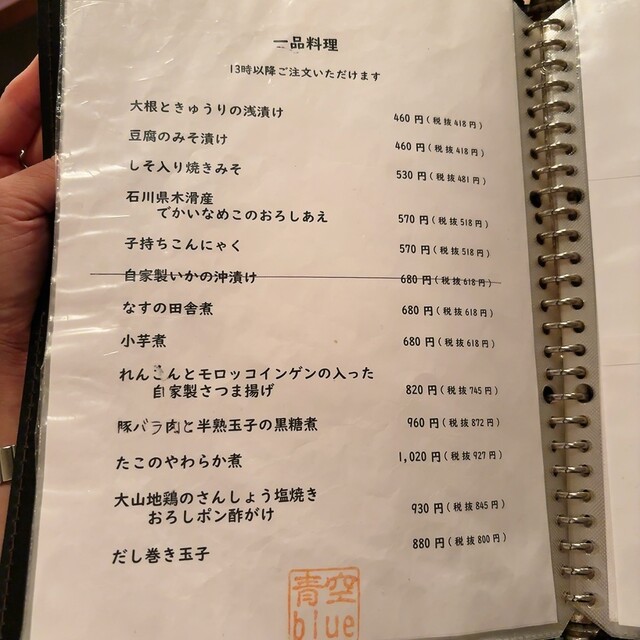 一品料理
13時以降ご注文いただけます
大根ときゅうりの浅漬け 460円(税抜418円)
豆腐のみそ漬け 460円(税抜418円)
しそ入り焼きみそ 530円(税抜481円)
石川県木滑産
でかいなめこのおろしあえ 570円(税抜518円)
子持ちこんにゃく 570円(税抜518円)
自家製いかの沖漬け 680円(税抜618円)
なすの田舎煮 680円(税抜618円)
小芋煮 680円(税抜618円)
れんこんとモロッコインゲンの入った
自家製さつま揚げ 820円(税抜745円)
豚バラ肉と半熟玉子の黒糖煮 960円(税抜872円)
たこのやわらか煮 1,020円(税抜927円)
大山地鶏のさんしょう塩焼き
おろしポン酢がけ 930円(税抜845円)
だし巻き玉子 880円(税抜800円)
青空
blue